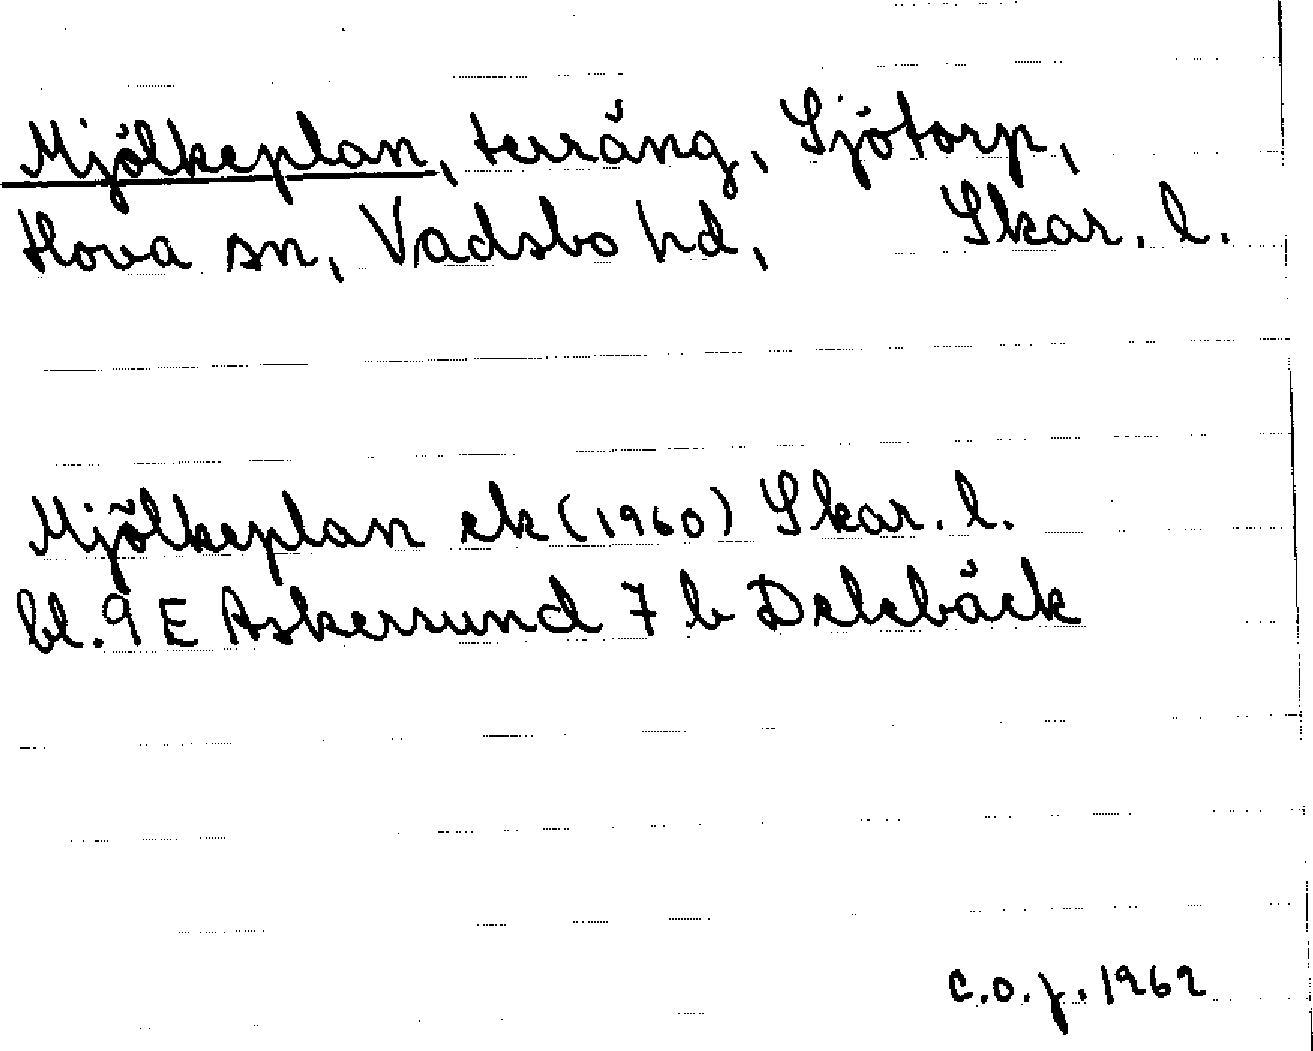 Mjölkeplan, terräng, Sjötorp,
Hova sn, Vadsbo hd, Skar. l.
Mjölkeplan ek (1960) Skar. l.
bl. 9 E Askersund 7 b Delebäck
C.O.J. 1962